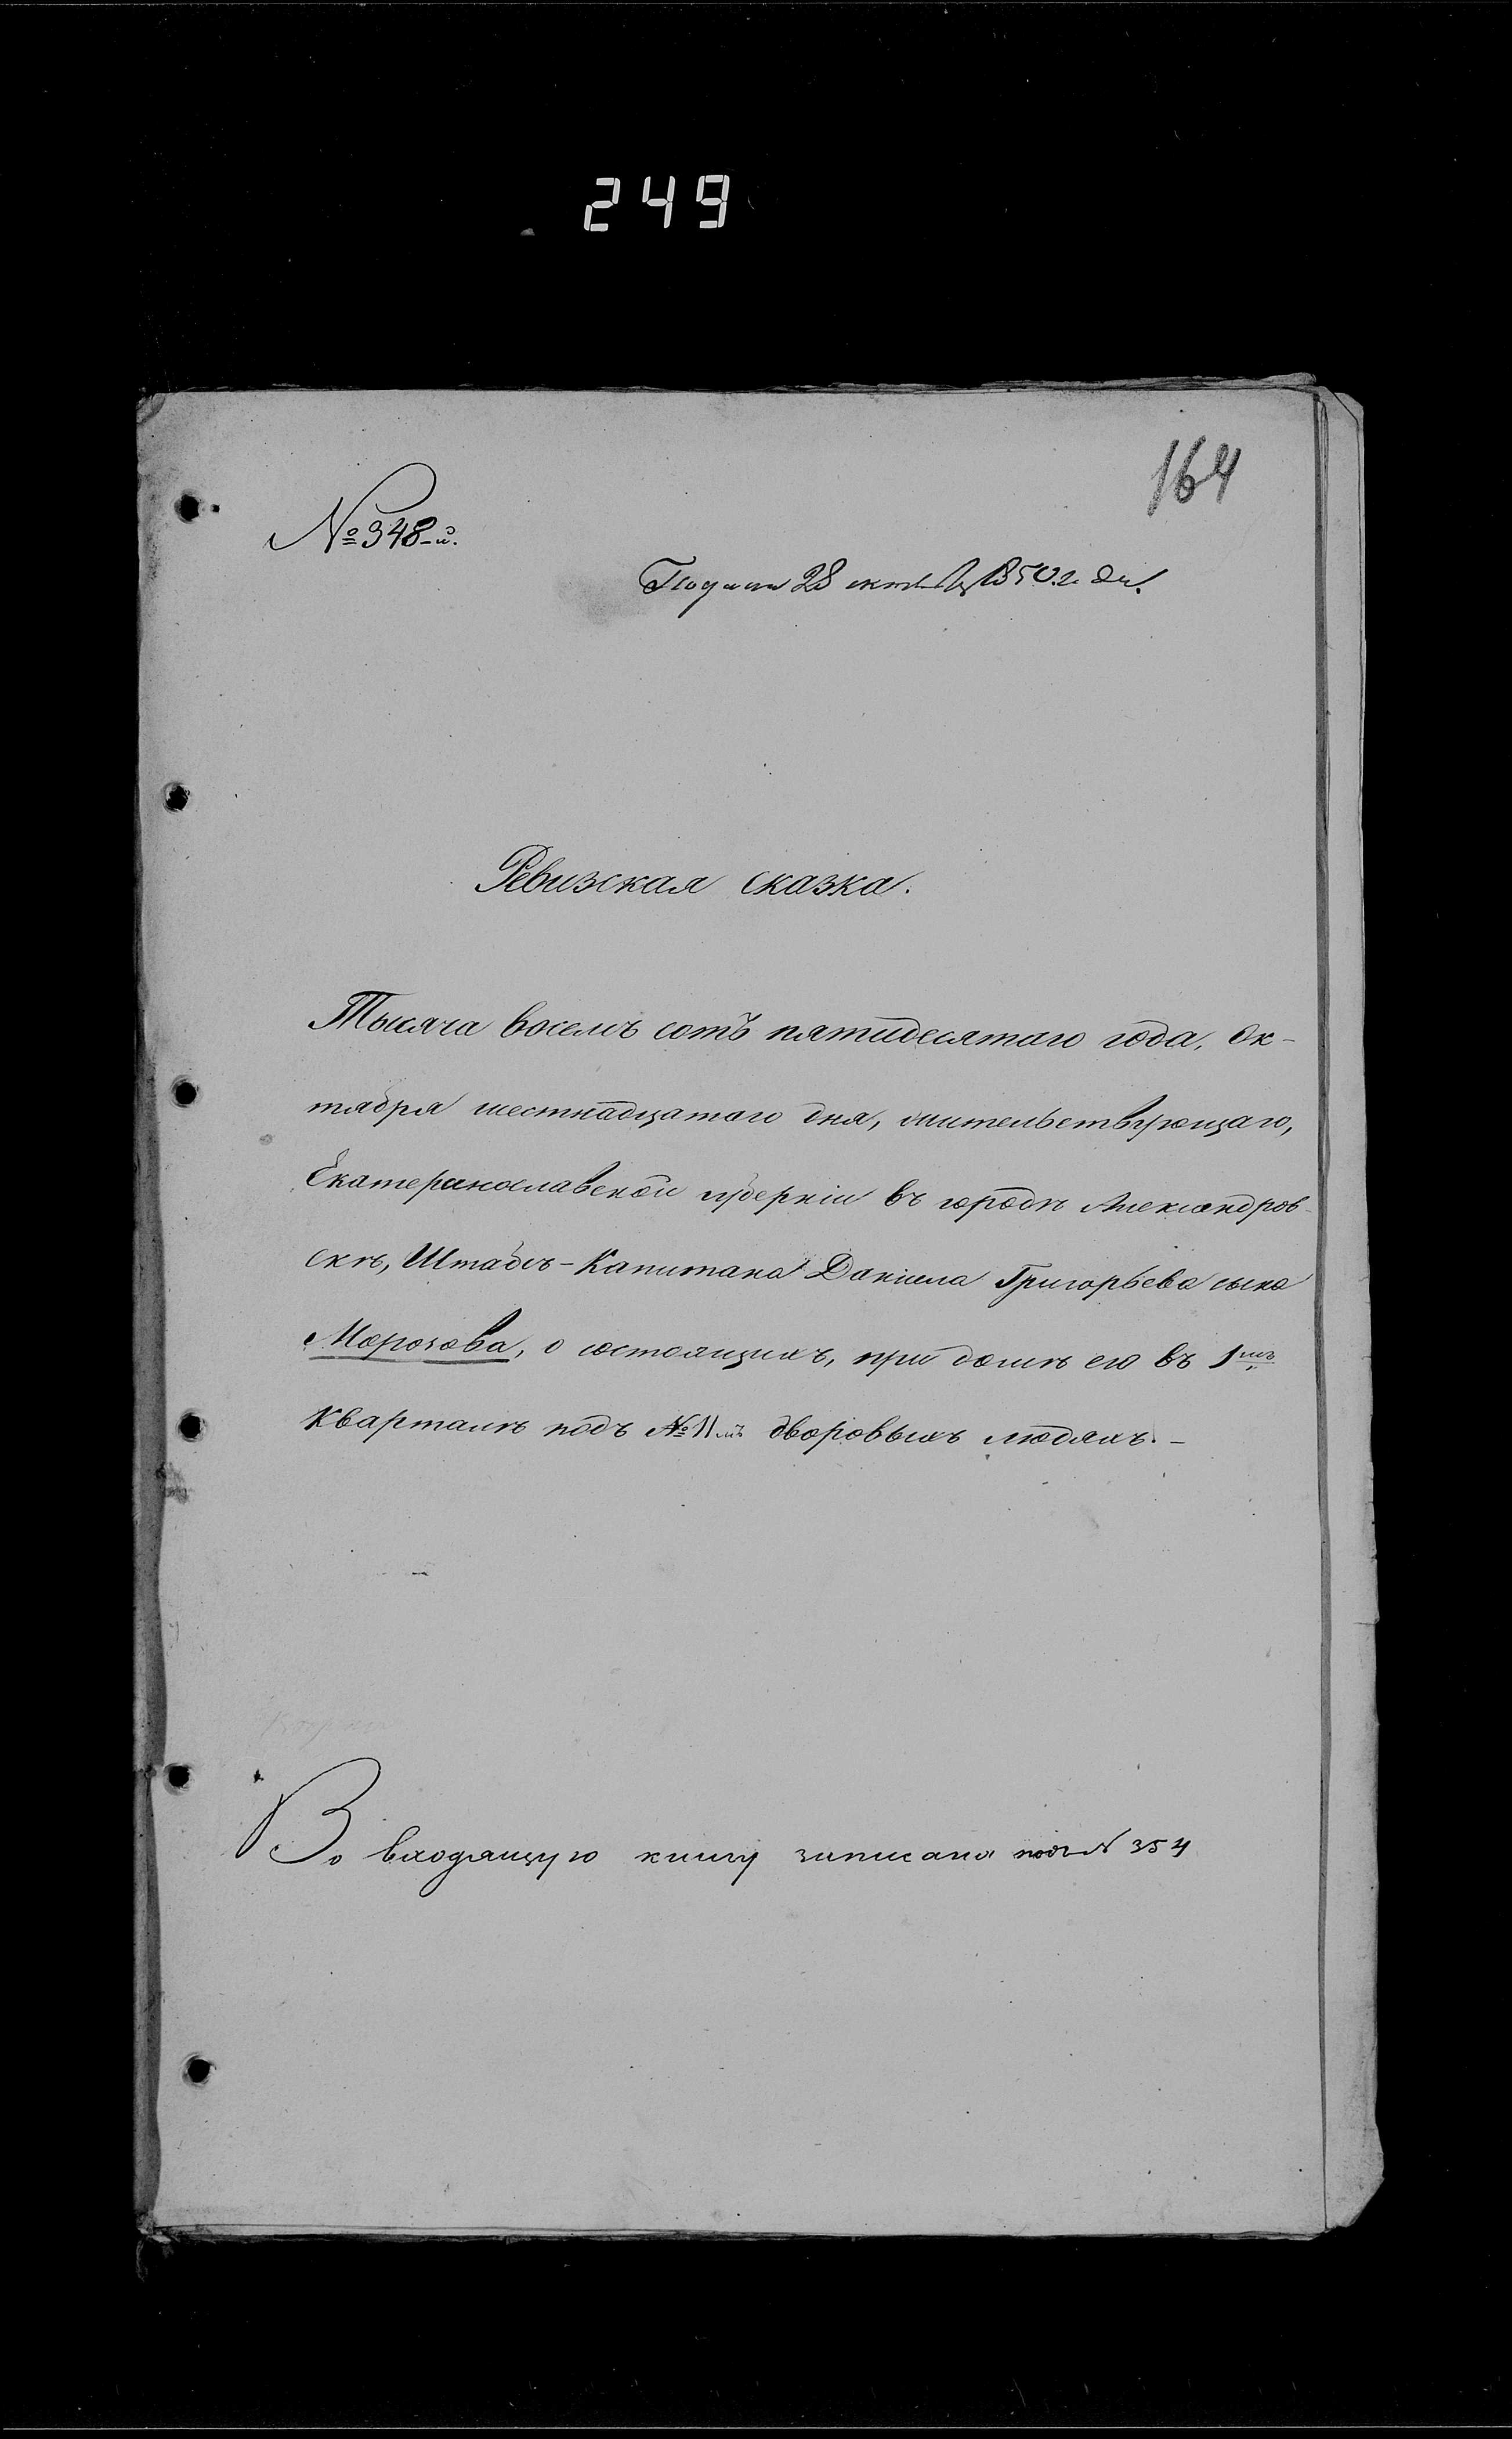 249
164
№ 348-й.
Подана 28 октября 1850 го
Ревизская сказка.
Тысяча восемъ сотъ пятидесятаго года, Ок-
тября шестнадцатого дня, жительствующаго,
Екатеринославской губерніи въ городѣ Александров-
скѣ, Штабсъ-Капитана Даніила Григорьева сына
Морозова, о состоящихъ, при домѣ его въ 1мъ
Кварталѣ подъ № 11мъ дворовыхъ людяхъ.-
Во входящую книгу записана подъ № 354